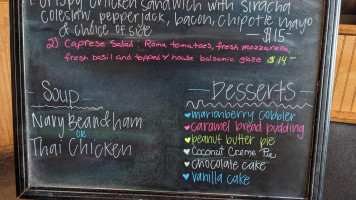 1. Crispy Chicken sandwich with siracha
coleslaw, pepperjack, bacon, chipotle mayo
& choice of side -$15-
2) Caprese Salad: Roma tomatoes, fresh mozzarella,
fresh basil and topped w house balsamic glaze $14-
Soup
Navy Bean & ham
OR
Thai Chicken
-Desserts-
♥marionberry cobbler
♥caramel bread pudding
♥peanut butter pie
♥Coconut Creme Pie
♥chocolate cake
♥vanilla cake